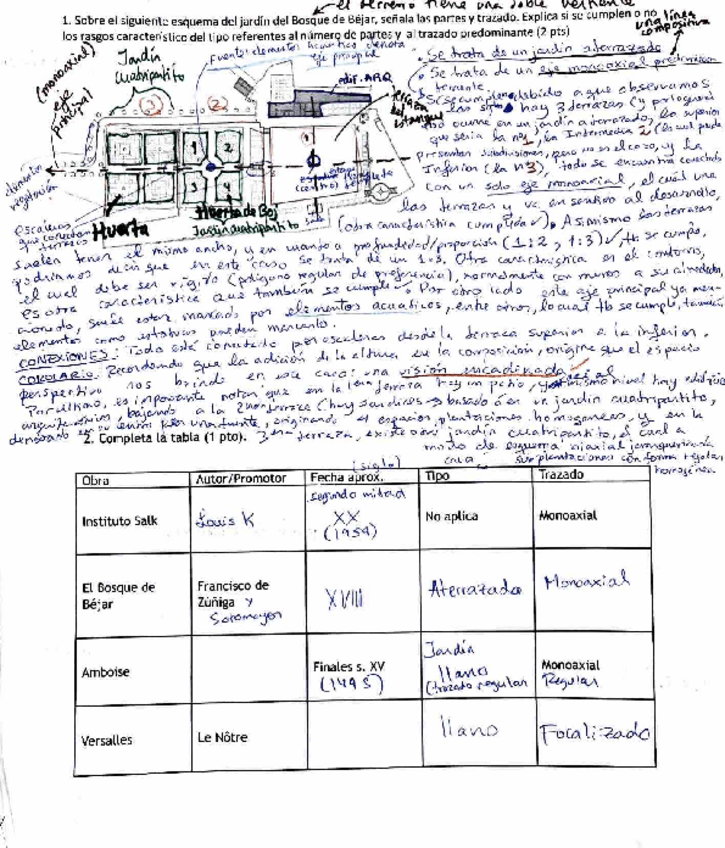 el terreno tiene una doble vertiente
1. Sobre el siguiente esquema del jardín del Bosque de Béjar, señala las partes y trazado. Explica si se cumplen o no
los rasgos característico del tipo referentes al número de partes y al trazado predominante (2 pts)
una línea compositiva
(monoaxial)
eje principal
Jardín cuatripartito
Fuente: elementos acuáticos denota eje principal
edif. ARQ
terraza del estanque
3
2
1
1 2
3 4
elemento vegetación
escaleras que conectan terrazas
Huerta
Huerta de Bej
Jardín cuatripartito
· Se trata de un jardín aterrazado
· Se trata de un eje monoaxial predominan
temente.
debido a que observamos
hay 3 terrazas (y por lo general
ocurre en un jardín aterrazado, la superior
que sería la nº1, la Intermedia 2 (la cual puede
presentar subdivisiones, pero no es el caso, y la
Inferior (la nº3), todo se encuentra conectado
con un solo eje monoaxial, el cual une
las terrazas y va en sentido al desarrollo
(otra característica cumplida ✓). Asimismo las terrazas
suelen tener el mismo ancho, y en cuanto a profundidad/proporción (1:2, 1:3) ✓ tb se cumple,
podríamos decir que en este caso se trata de un 1:3. Otra característica es el contorno,
el cual debe ser rígido (polígono regular de preferencia), normalmente con muros a su alrededor,
es otra característica que también se cumple. Por otro lado este eje principal ya men-
cionado, suele estar marcado por elementos acuáticos, entre otros, lo cual tb se cumple, también
elementos como estatuas pueden marcarlo.
CONEXIONES: Todo está conectado por escaleras desde la terraza superior a la inferior.
COROLARIO: Recordando que la adición de la altura en la composición, origine que el espacio
perspectivo nos brinda en este caso: una visión encadenada
Por último, es importante notar que en la 1era terraza hay un patio, y al mismo nivel hay edificio
arquitectónico, bajando a la 2nda terraza (hay jardines → basado en un jardín cuatripartito,
denotado en su centro por una fuente, originando 4 espacios, plantaciones homogéneas, y en la
3era terraza, existe otro jardín cuatripartito, el cual a
modo de esquema biaxial jerarquizando
sus plantaciones con forma regular
homogénea
2. Completa la tabla (1 pto).
(siglo)
Obra | Autor/Promotor | Fecha aprox. | Tipo | Trazado
Instituto Salk | Louis K | segunda mitad XX (1959) | No aplica | Monoaxial
El Bosque de Béjar | Francisco de Zúñiga y Sotomayor | XVIII | Aterrazado | Monoaxial
Amboise | Finales s. XV (1495) | Jardín llano (trazado regular | Monoaxial Regular
Versalles | Le Nôtre | llano | Focalizado